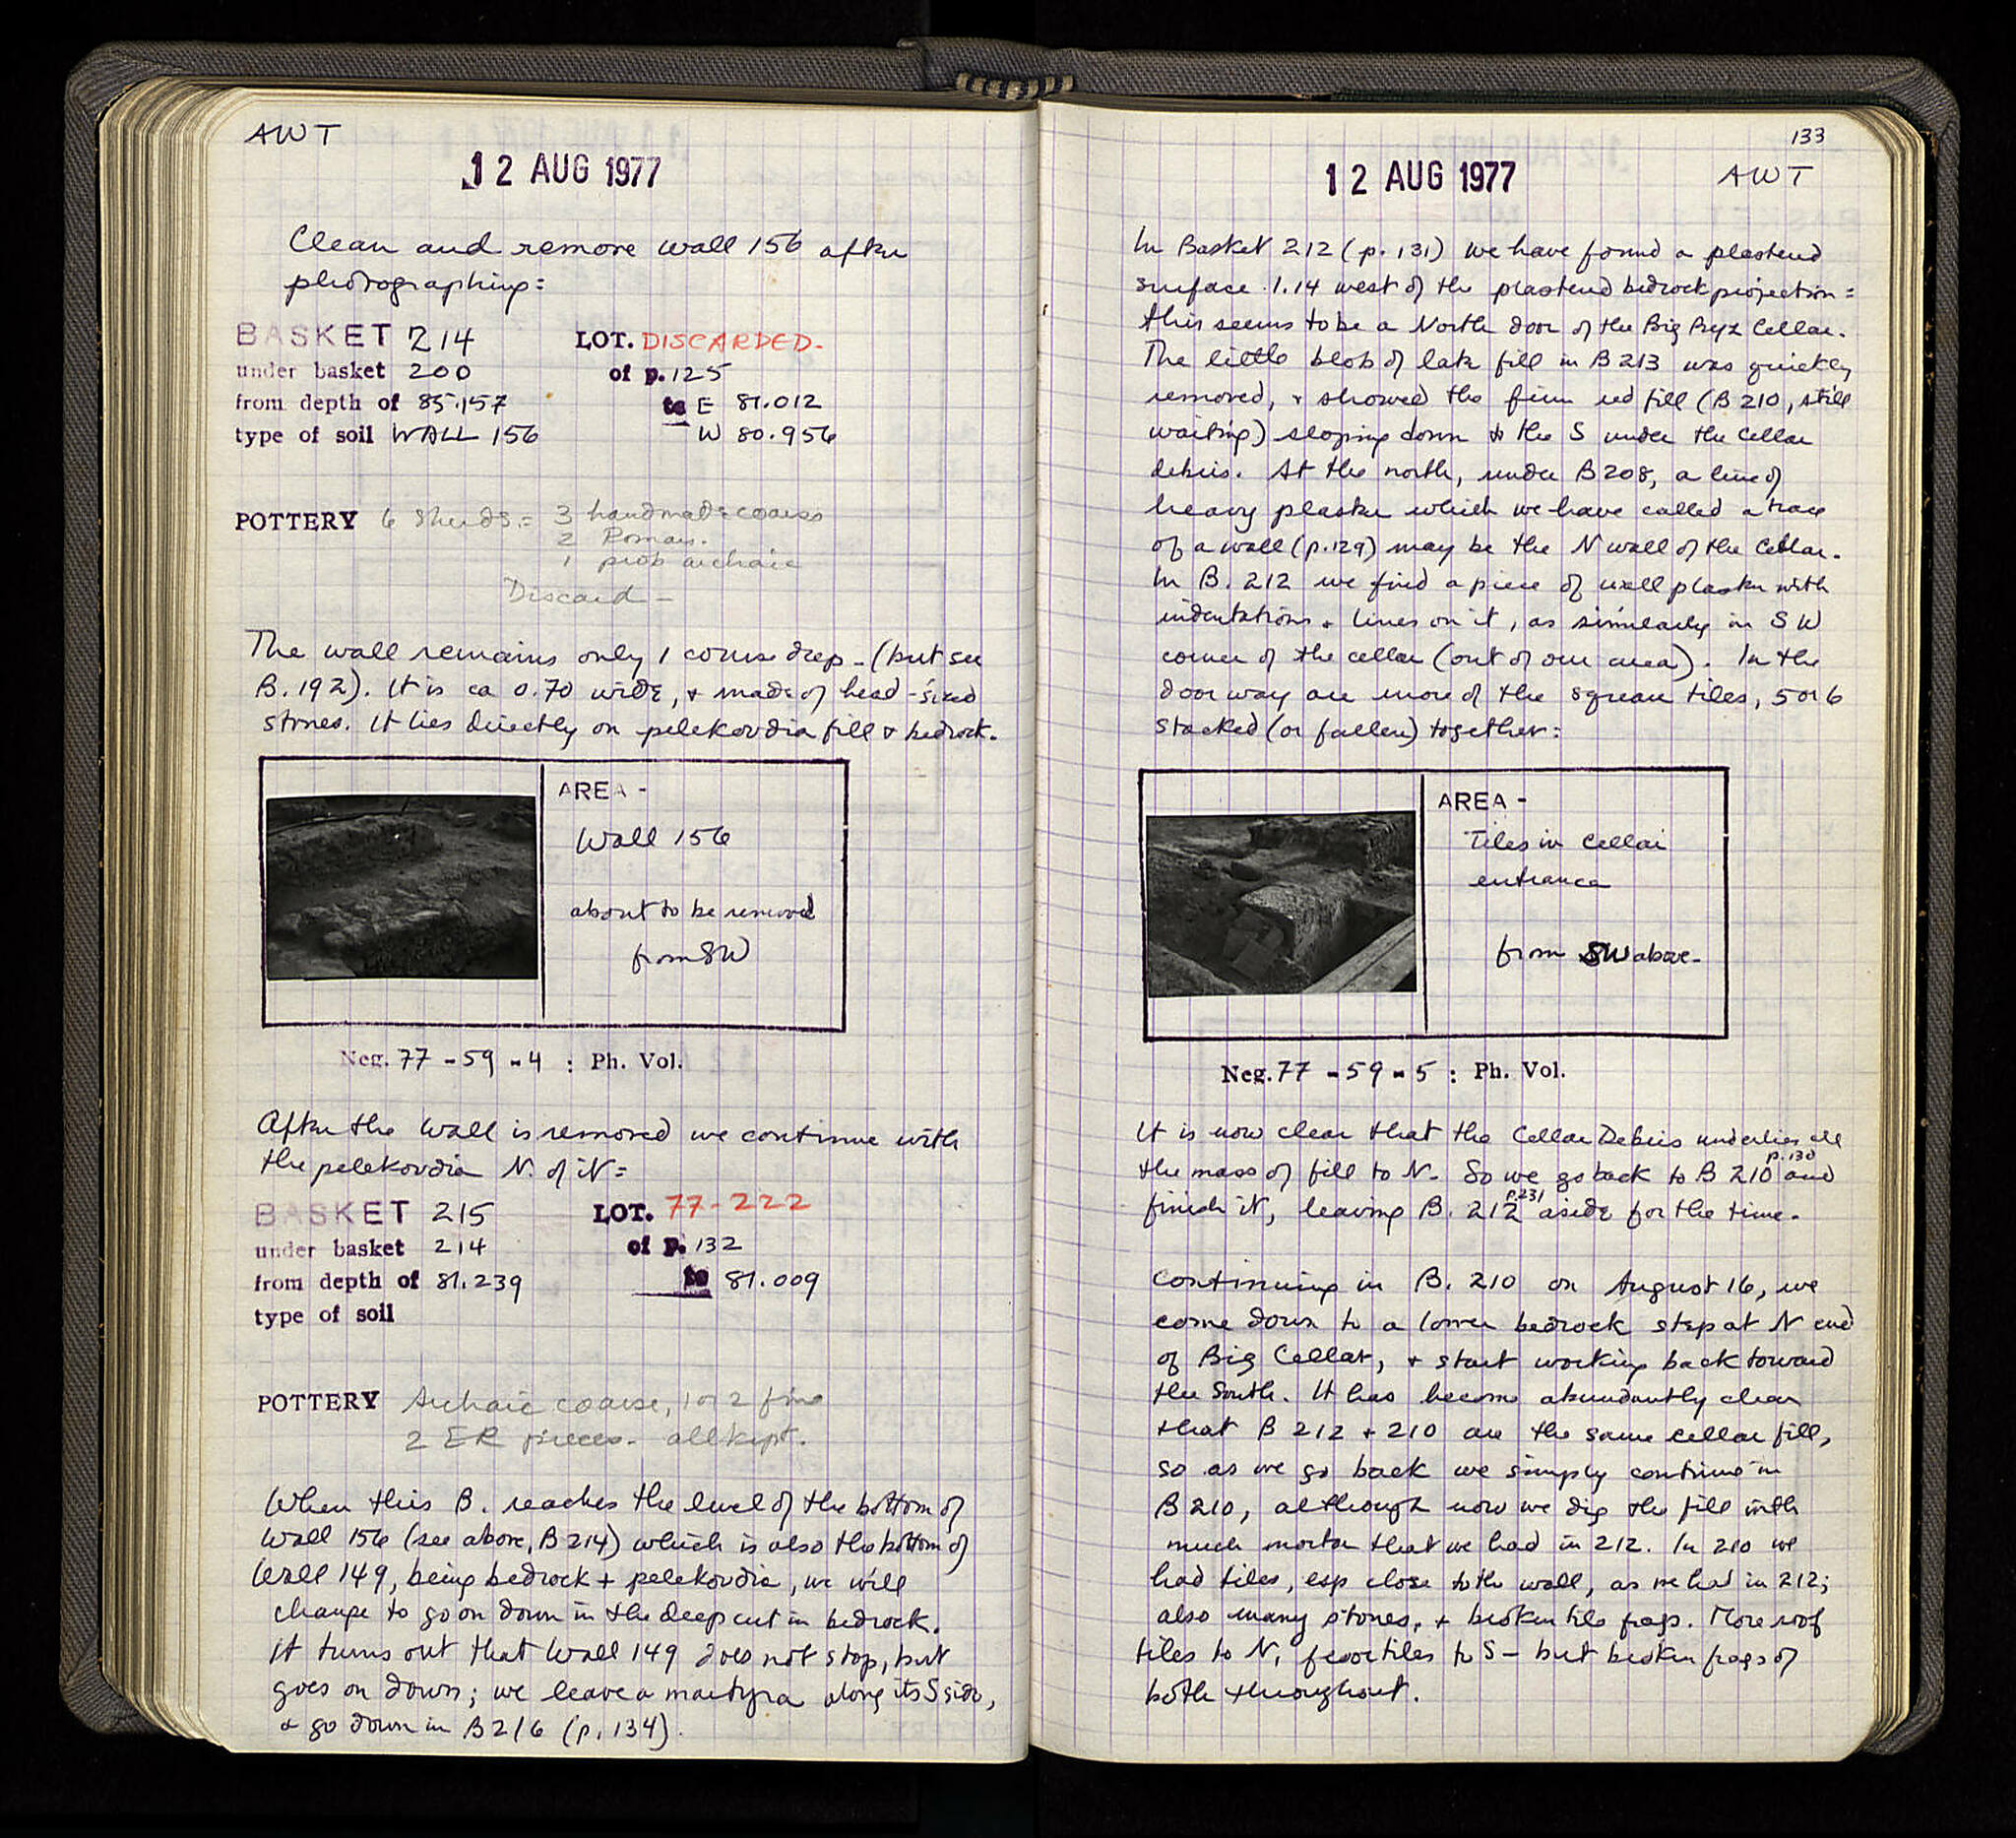 AWT
12 AUG 1977
Clean and remove wall 156 after
photographing:
BASKET 214 LOT. DISCARDED-
under basket 200 of p. 125
from depth of 85.157 to E 81.012
type of soil WALL 156 W 80.956
POTTERY 6 sherds: 3 handmade coarse
2 Roman.
1 prob archaic
Discard -
The wall remains only 1 course deep - (but see
B. 192). It is ca 0.70 wide, + made of head-sized
stones. It lies directly on pelekoudia fill + bedrock.
AREA -
Wall 156
about to be removed
from SW
Neg. 77 - 59 - 4 : Ph. Vol.
After the wall is removed we continue with
the pelekoudia N. of it:
BASKET 215 LOT. 77-222
under basket 214 of p. 132
from depth of 81.239 to 81.009
type of soil
POTTERY Archaic coarse, 1 or 2 fine
2 ER pieces - all kept.
When this B. reaches the level of the bottom of
Wall 156 (see above, B 214) which is also the bottom of
Wall 149, being bedrock + pelekoudia, we will
change to go on down in the deep cut in bedrock.
It turns out that Wall 149 does not stop, but
goes on down; we leave a martyra along its S side,
+ go down in B 216 (p. 134).
133
12 AUG 1977 AWT
In Basket 212 (p. 131) we have found a plastered
surface 1.14 west of the plastered bedrock projection =
this seems to be a North door of the Big Byz Cellar.
The little blob of late fill in B 213 was quickly
removed, + showed the firm red fill (B 210, still
waiting) sloping down to the S under the cellar
debris. At the north, under B 208, a line of
heavy plaster which we have called a trace
of a wall (p. 129) may be the N wall of the Cellar.
In B. 212 we find a piece of wall plaster with
indentations + lines on it, as similarly in SW
corner of the cellar (out of our area). In the
doorway are more of the square tiles, 5 or 6
stacked (or fallen) together:
AREA -
Tiles in Cellar
entrance
from SW above-
Neg. 77 - 59 - 5 : Ph. Vol.
It is now clear that the Cellar Debris underlies all
the mass of fill to N. So we go back to B 210 p. 130 and
finish it, leaving B. 212 p. 231 aside for the time.
Continuing in B. 210 on August 16, we
come down to a lower bedrock step at N end
of Big Cellar, + start working back toward
the South. It has become abundantly clear
that B 212 + 210 are the same cellar fill,
so as we go back we simply continue in
B 210, although now we dig the fill with
much mortar that we had in 212. In 210 we
had tiles, esp close to the wall, as we had in 212;
also many stones, + broken tile frags. More roof
tiles to N, floor tiles to S - but broken frags of
both throughout.